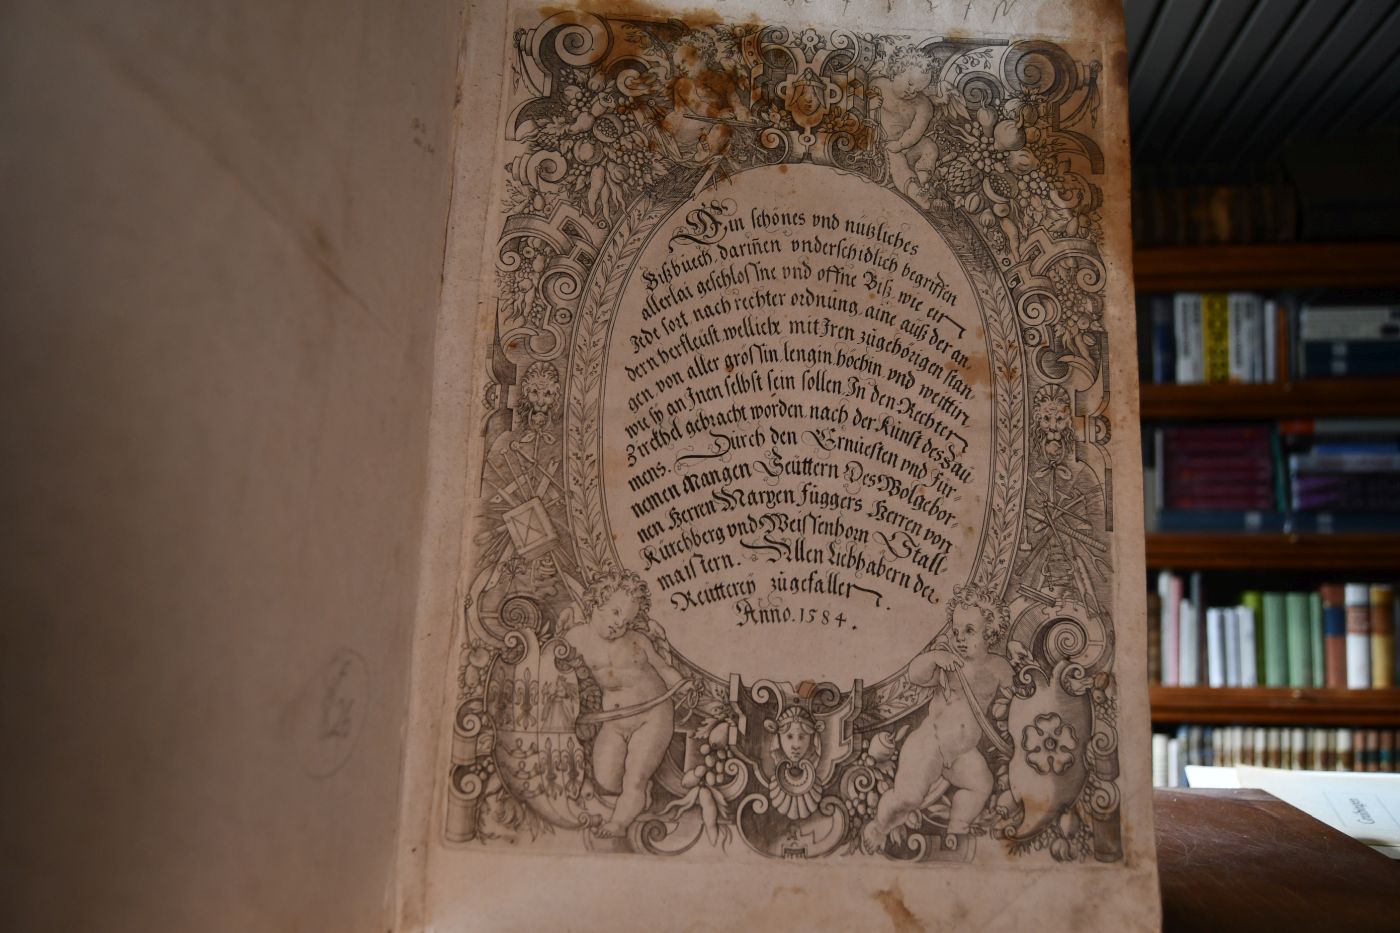 Ein schönes vnd nützliches
Bißbuech darin̄en vnderschidlich begriffen
allerlai geschlossne vnd offne Biß wie ein
Jede sort nach rechter ordnung aine auß der an
dern herfleust welliche mit Iren zügehörigen stan
gen von aller grössin lengin hochin vnd weittin
wie sÿ an Inen selbst sein sollen In den Rechten
Zirckhel gebracht worden nach der Kunst des Zäu
mens. Durch den Ernuesten vnd für-
nemen Mangen Seüttern Des Wolgebor-
nen Herren Marxen Függers Herren von
Kürchberg vnd Weissenhorn Stall-
maistern. Allen Liebhabern der
Reütterey zügefallen.
Anno. 1584.